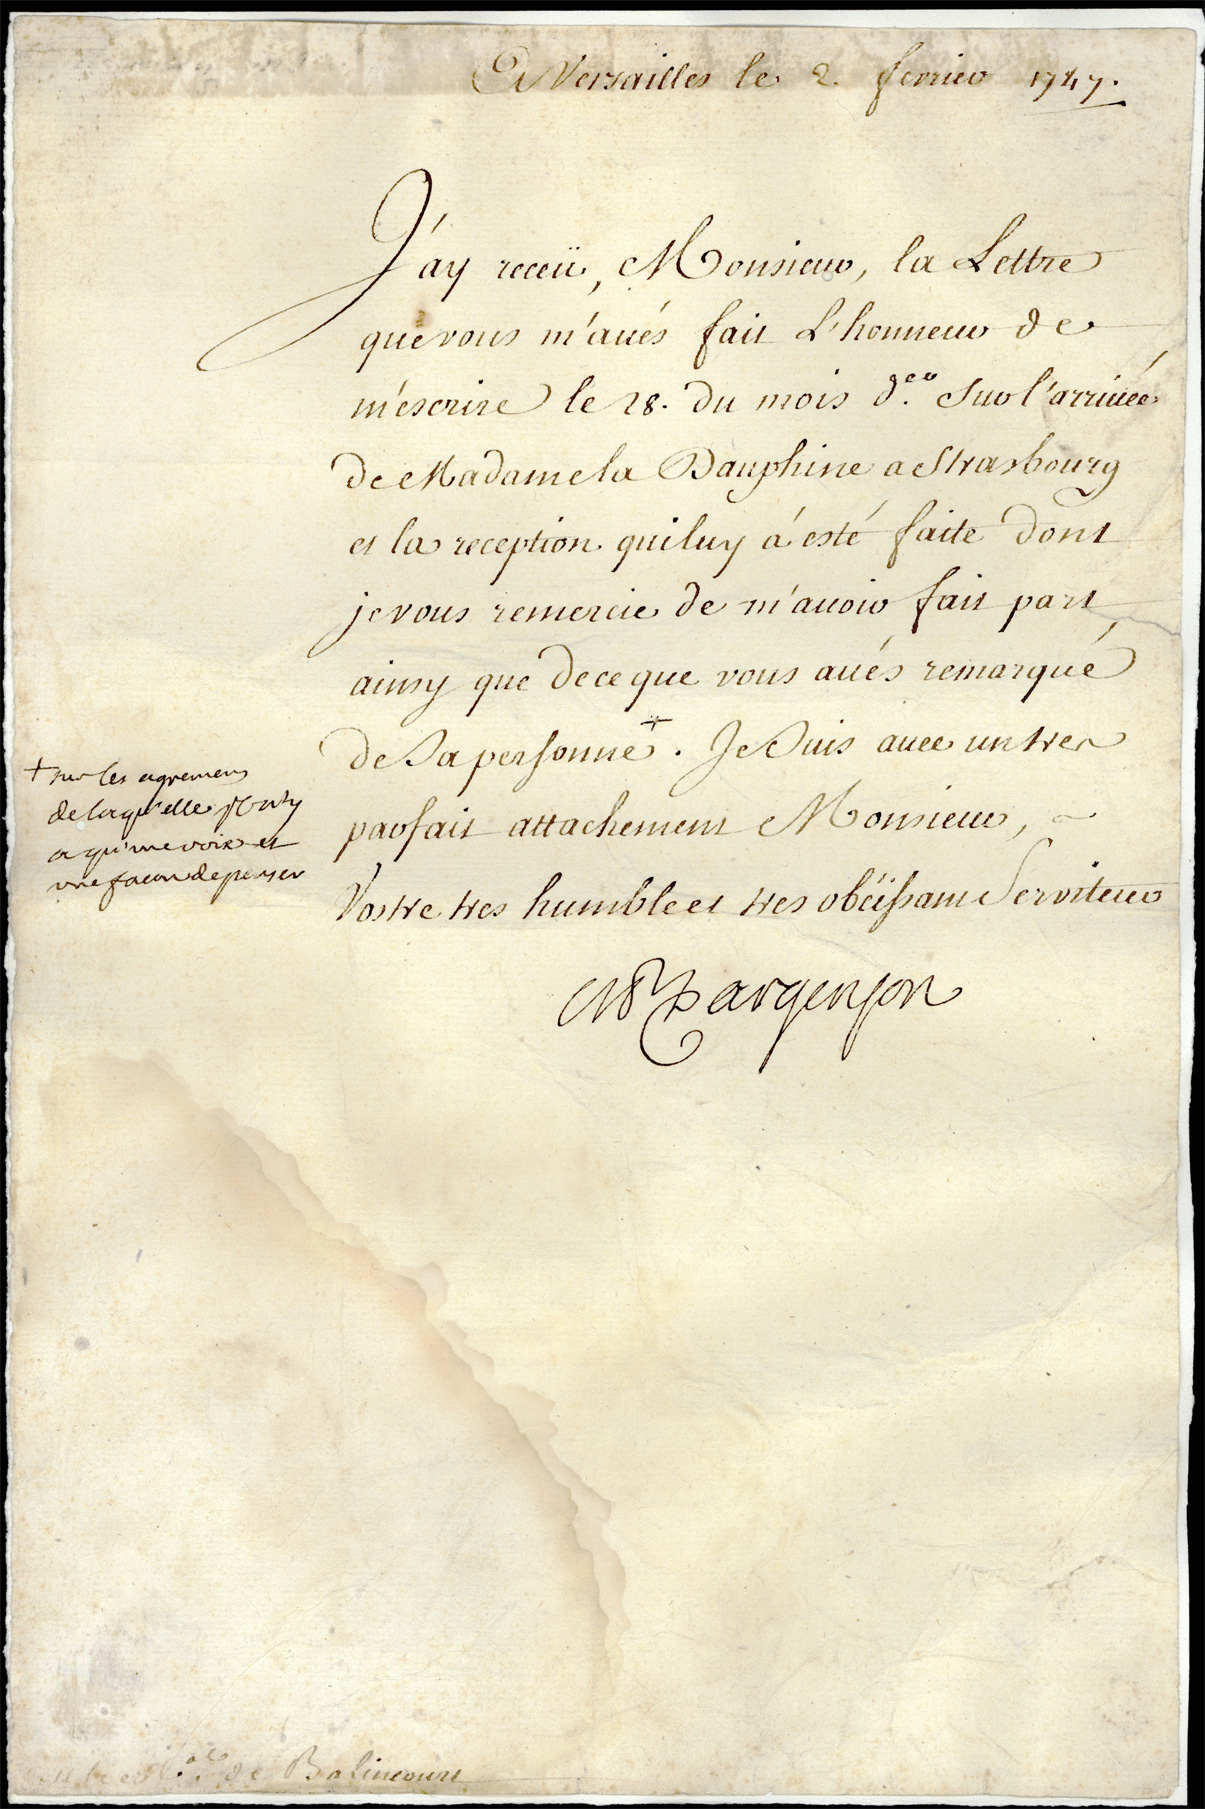 A Versailles le 2. fevrier 1747.
J'ay receü, Monsieur, la Lettre
que vous m'avés fait L'honneur de
m'éscrire le 28. du mois d.er Sur l'arrivée
de Madame la Dauphine a Strasbourg
et la reception qui luy á esté faite dont
je vous remercie de m'avoir fait part
ainsy que de ce que vous avés remarqué
de Sa personne +. Je Suis avec un tres
parfait attachement Monsieur,
Vostre tres humble et tres obéissant Serviteur
+ sur les agremens
de laquelle
a qu'une voix et
une facon de penser
M Dargenson
de Balincourt